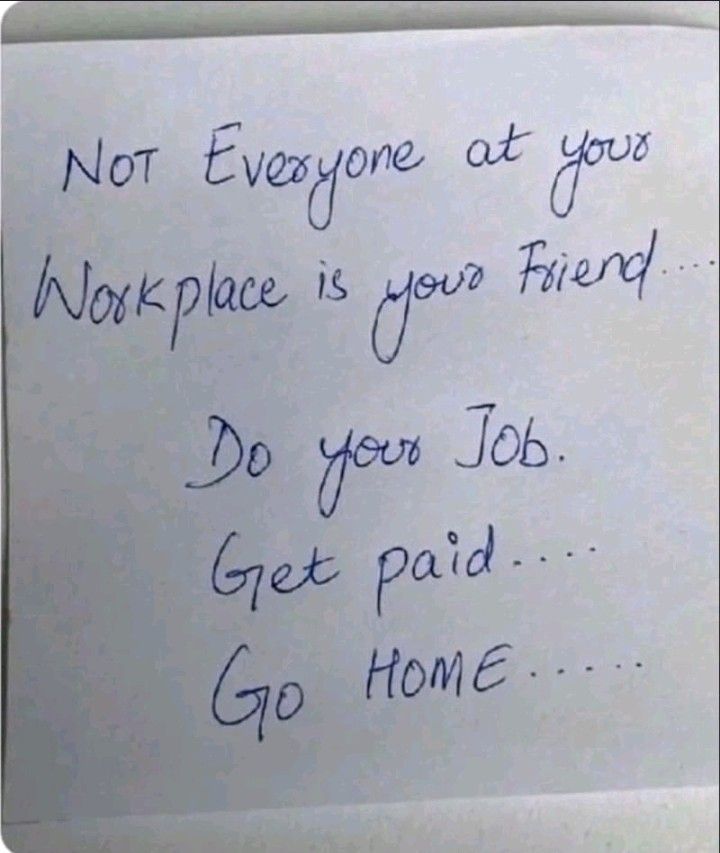 NOT Everyone at your
Workplace is your Friend....
Do your Job.
Get paid....
Go HOME.....